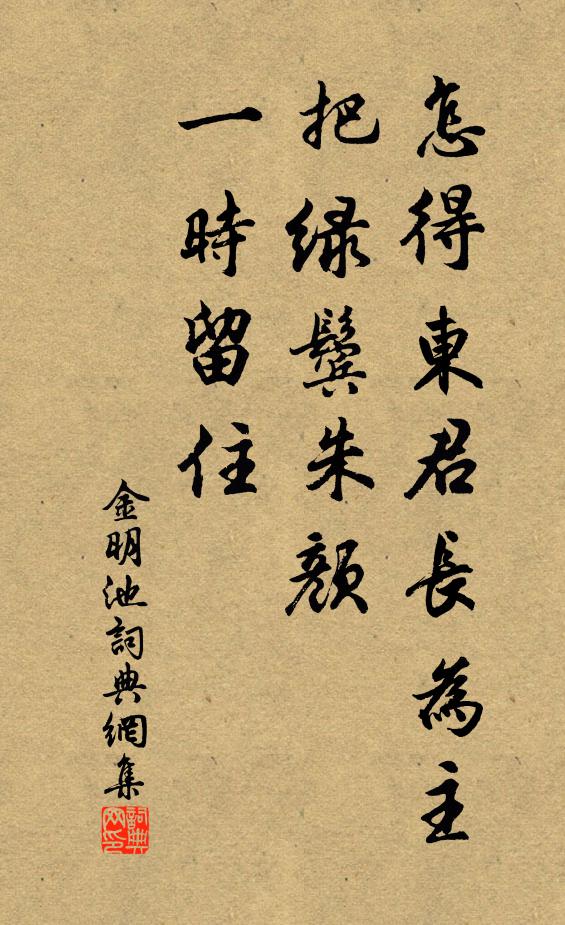 怎得東君長為主
把緑鬢朱顔
一時留住
金明池詞典網集
詞典
网印